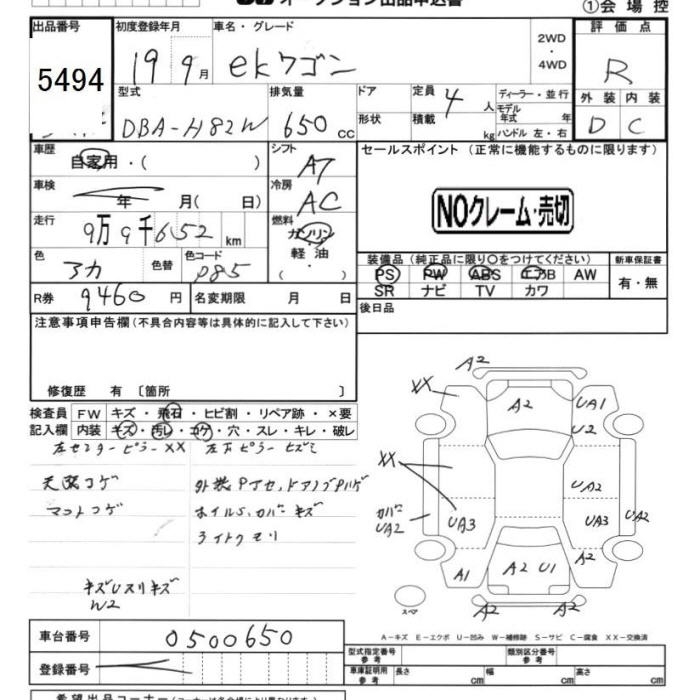 オークション出品申込書
①会場控
出品番号 初度登録年月 車名・グレード 評価点
5494 19 9月 ekワゴン 2WD・4WD R
型式 排気量 ドア 定員 4人 ディーラー・並行 外装 内装
DBA-H82W 650cc 形状 積載 kg モデル年式 年 ハンドル 左・右 D C
車歴 シフト セールスポイント (正常に機能するものに限ります)
自家用・( ) AT
車検 年 月( 日) 冷房 AC
NOクレーム・売切
走行 燃料
9万9千652km ガソリン
軽油
・( )
色 色替 色コード 装備品(純正品に限り○をつけてください) 新車保証書
アカ P85 PS PW ABS エアB AW 有・無
SR ナビ TV カワ
R券 9460円 名変期限 月 日 後日品
注意事項申告欄(不具合内容等は具体的に記入して下さい)
修復歴 有 〔箇所 〕
検査員 FW キズ・飛石・ヒビ割・リペア跡・×要
記入欄 内装 キズ・汚レ・コゲ・穴・スレ・キレ・破レ
左センターピラーXX 左下ピラーヒズミ
天張コゲ
マットコゲ ホイルS、カバーキズ
ライトクモリ
キズUスリキズ
W2
A2
XX A2 UA1
U2
XX UA2
カバー UA2 UA3 UA3 UA2
A1 A2 U1 A2
スペア A2 A2
A-キズ E-エクボ U-凹み W-補修跡 S-サビ C-腐食 XX-交換済
車台番号 0500650
型式指定番号 参考 類別区分番号 参考
登録番号 車庫証明用 参考 長さ cm 幅 cm 高さ cm
希望出品コーナー